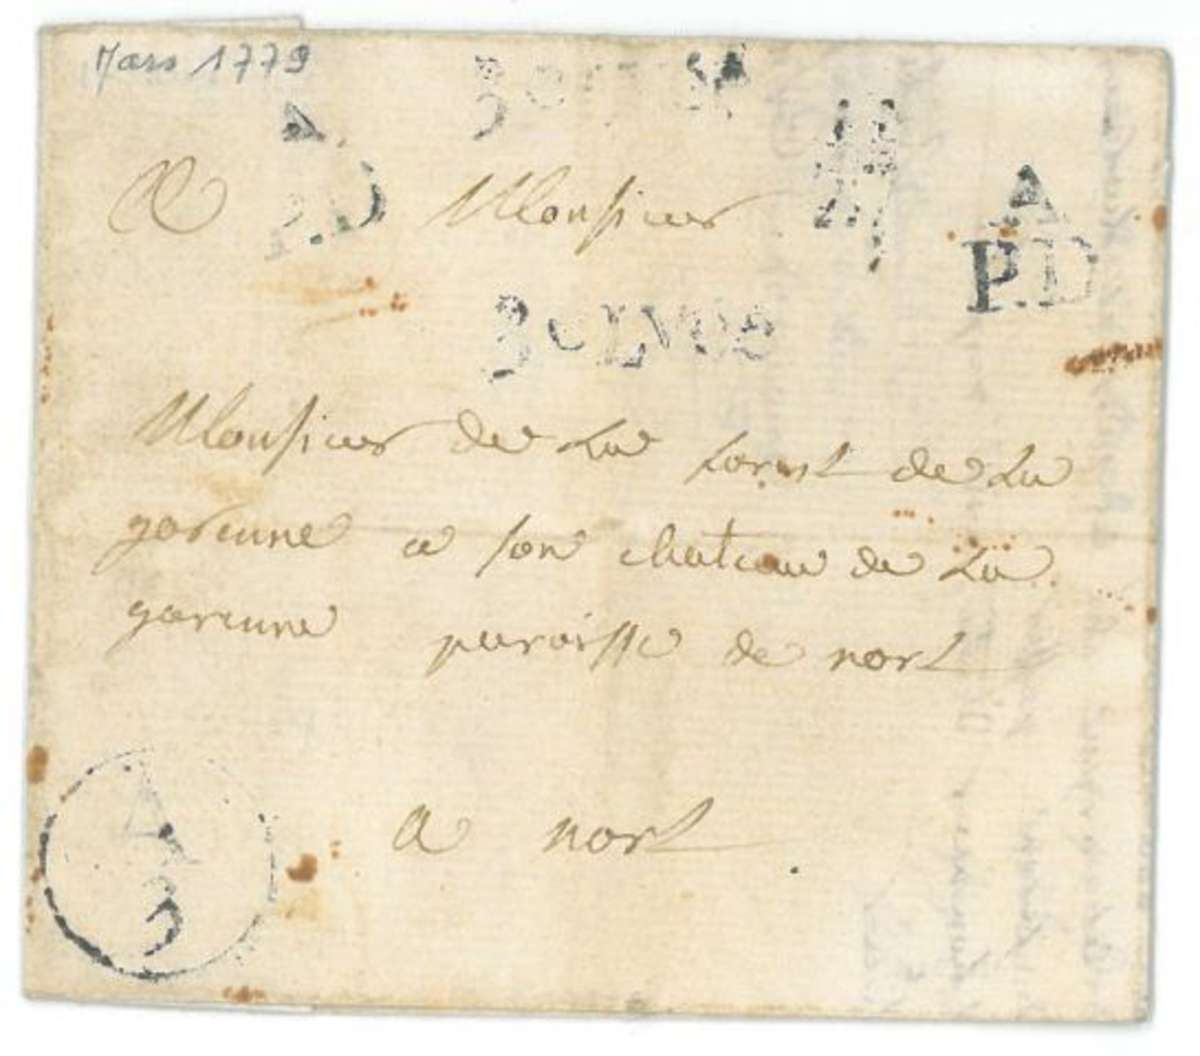 Mars 1779
A
P.D
A Monsieur
A
P.D
Monsieur de La forest de La
garenne a son chateau de La
garenne paroisse de nort
a nort
A
3